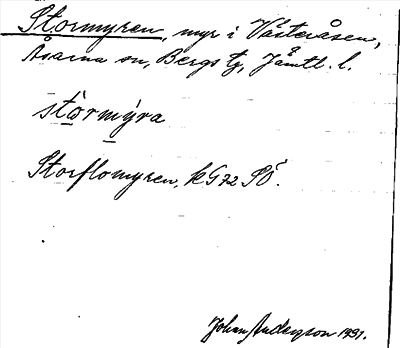 Stormyren, myr i Västeråsen,
Åsarna sn, Bergs tg, Jämtl. l.
stòrmýra
Storflomyren, kG 72 SÖ.
Johan Anderzson 1931.